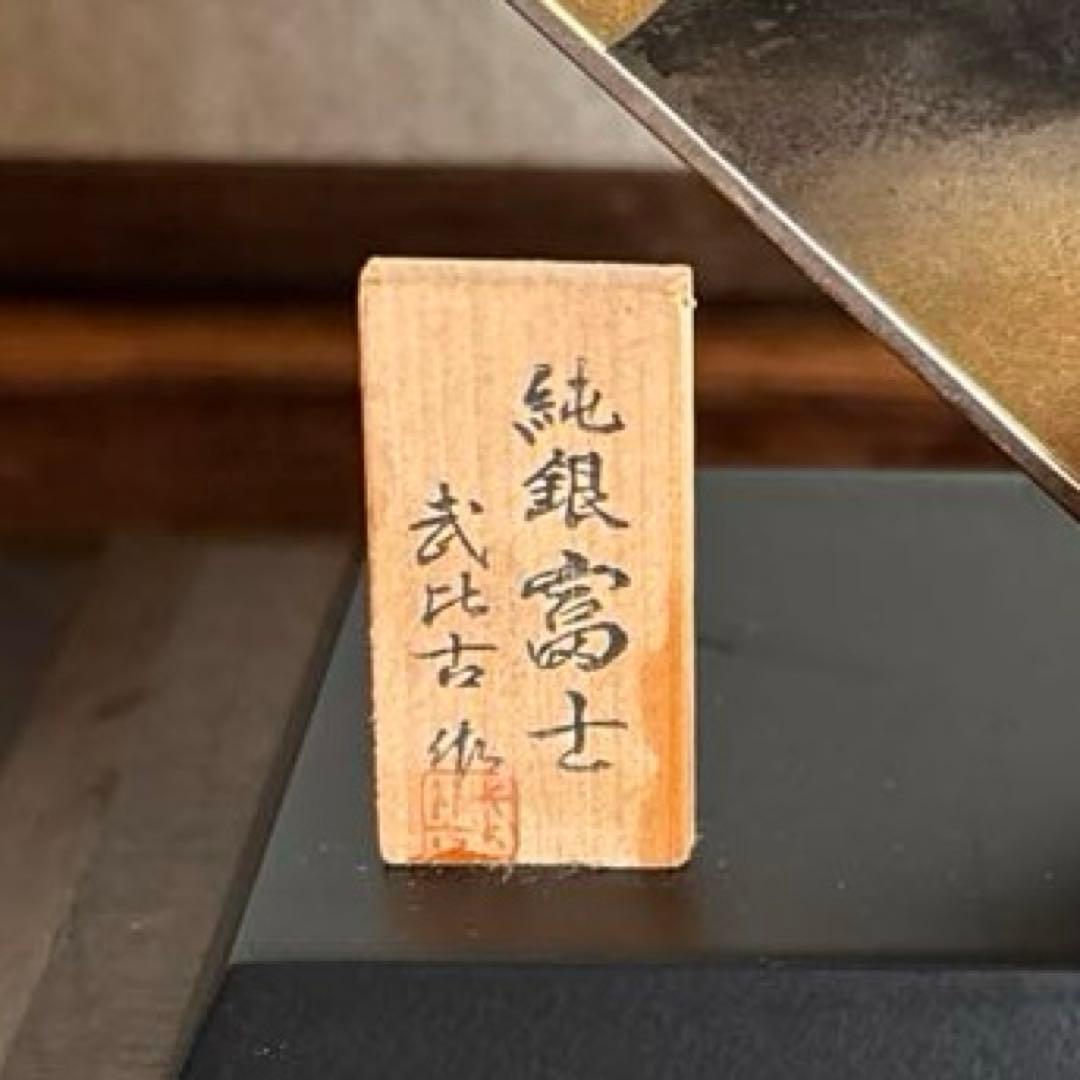 純銀富士
武比古作